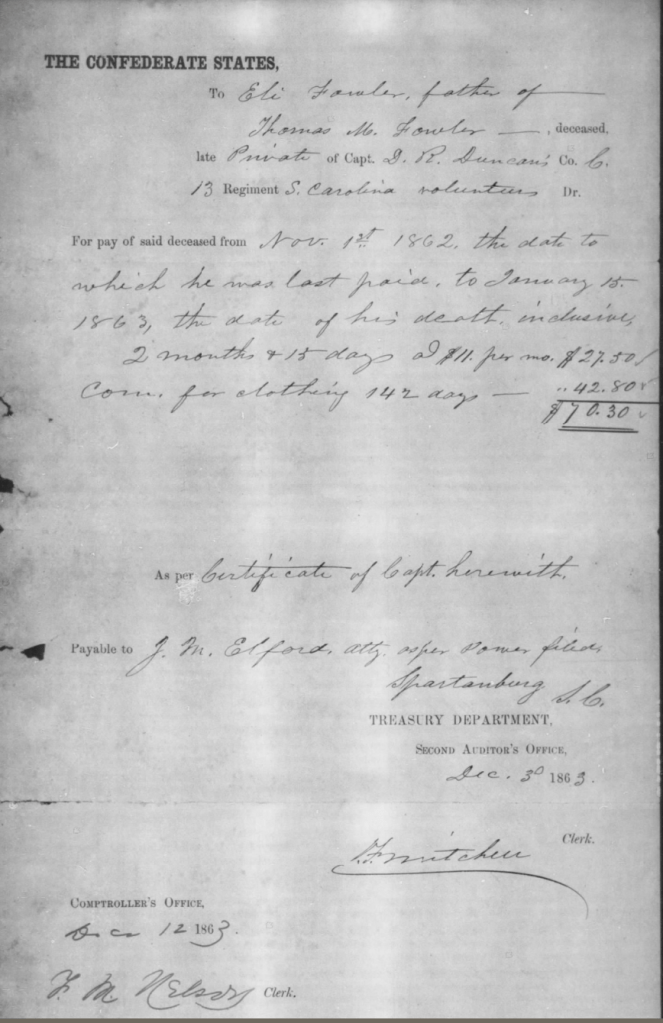 THE CONFEDERATE STATES,
To Eli Fowler, father of
Thomas M. Fowler —, deceased,
late Private of Capt. D. R. Duncan's Co. C.
13 Regiment S. Carolina volunteers Dr.
For pay of said deceased from Nov. 1st 1862, the date to
which he was last paid, to January 15
1863, the date of his death, inclusive,
2 months & 15 days at $11. per mo. $27.50
Com. for clothing 142 days — " 42.80
$70.30
As per Certificate of Capt. herewith.
Payable to J. M. Elford, atty. as per Power filed,
Spartanburg
S.C.
TREASURY DEPARTMENT,
SECOND AUDITOR'S OFFICE,
Dec. 3d 1863.
Mitchell Clerk.
COMPTROLLER'S OFFICE,
Dec 12 1863.
F. M. Nelson Clerk.